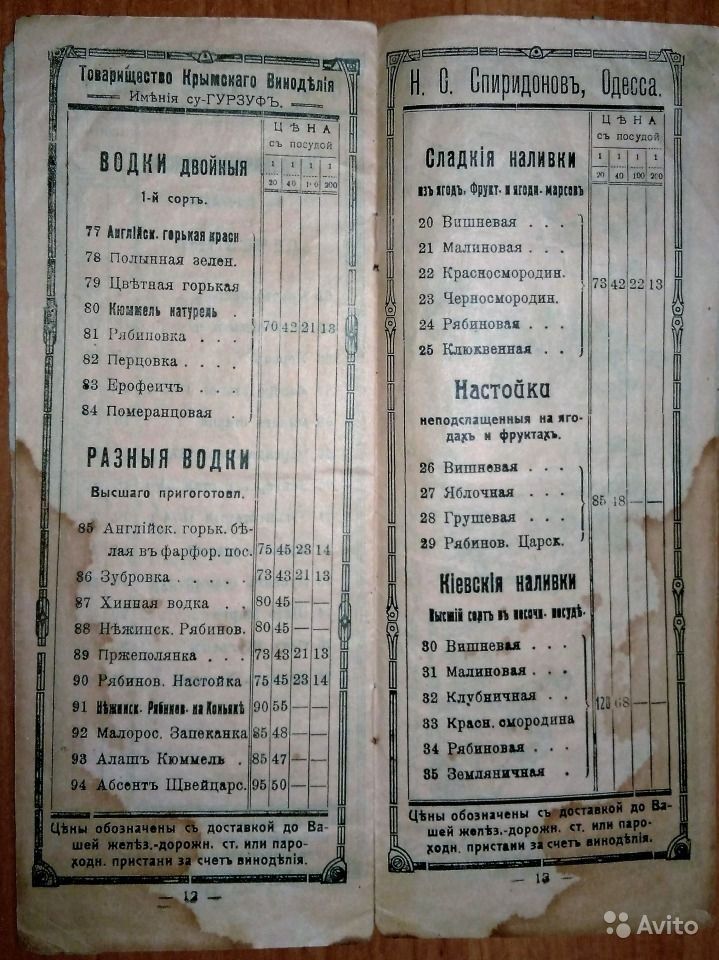 Товарищество Крымскаго Винодѣлія
— Имѣнія су-ГУРЗУФЪ. —
ЦѢНА
съ посудой
ВОДКИ двойныя
1 1 1 1
20 40 100 200
1-й сортъ.
77 Англійск. горькая красн
78 Полынная зелен.
79 Цвѣтная горькая
80 Кюммель натурель .
81 Рябиновка . . .
70 42 21 13
82 Перцовка . . . .
83 Ерофеичъ . . .
84 Померанцовая .
РАЗНЫЯ ВОДКИ
Высшаго приготовл.
85 Англійск. горьк. бѣ-
лая въ фарфор. пос. 75 45 23 14
86 Зубровка . . . . . 73 43 21 13
87 Хинная водка . . 80 45 — —
88 Нѣжинск. Рябинов. 80 45 — —
89 Пржеполянка . . . 73 43 21 13
90 Рябинов. Настойка 75 45 23 14
91 Нѣжинск. Рябинов. на Коньякѣ 90 55 — —
92 Малорос. Запеканка 85 48 — —
93 Алашъ Кюммель . 85 47 — —
94 Абсентъ Швейцарс. 95 50 — —
Цѣны обозначены съ доставкой до Ва-
шей желѣз.-дорожн. ст. или паро-
ходн. пристани за счетъ винодѣлія.
— 12 —
Н. О. Спиридоновъ, Одесса.
ЦѢНА
съ посудой
Сладкія наливки
1 1 1 1
20 40 100 200
изъ ягодъ, фрукт. и ягодн. марсовъ
20 Вишневая . . .
21 Малиновая . . .
22 Красносмородин.
73 42 22 13
23 Черносмородин.
24 Рябиновая . . .
25 Клюквенная . .
Настойки
неподслащенныя на яго-
дахъ и фруктахъ.
26 Вишневая . . .
27 Яблочная . . .
85 48 — —
28 Грушевая . . .
29 Рябинов. Царск.
Кіевскія наливки
Высшій сортъ въ песочн. посудѣ.
30 Вишневая . . .
31 Малиновая . . .
32 Клубничная . .
120 68 — —
33 Красн. смородина
34 Рябиновая . . .
35 Земляничная .
Цѣны обозначены съ доставкой до Ва-
шей желѣз.-дорожн. ст. или паро-
ходн. пристани за счетъ винодѣлія.
— 13 —
Avito